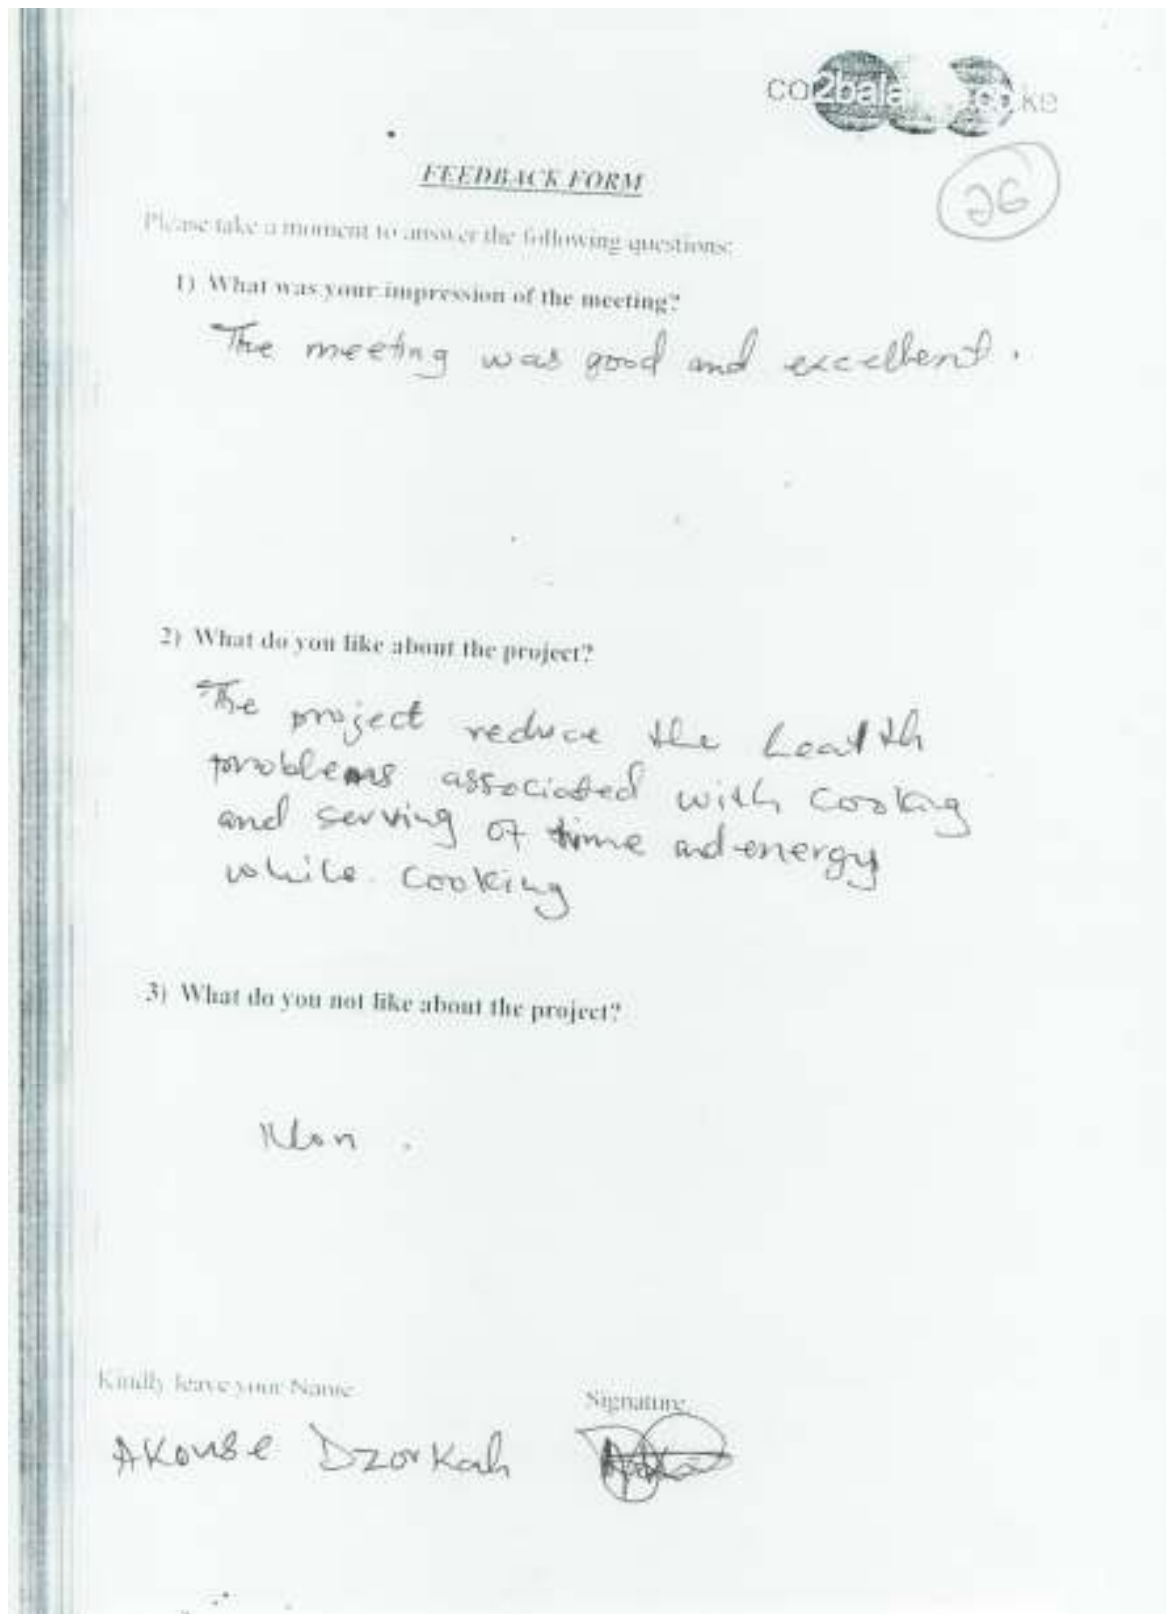 co2balance.co.ke
26
FEEDBACK FORM
Please take a moment to answer the following questions:
1) What was your impression of the meeting?
The meeting was good and excellent.
2) What do you like about the project?
The project reduce the health
problems associated with cooking
and serving of time and energy
while cooking
3) What do you not like about the project?
Non.
Kindly leave your Name
Signature
Akouse Dzorkah